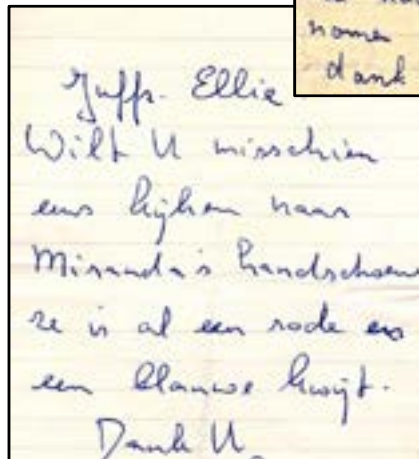 nomen
dank
Juffr. Ellie
Wilt U misschien
eens kijken naar
Miranda's handschoen
ze is al een rode en
een blauwe kwijt.
Dank U